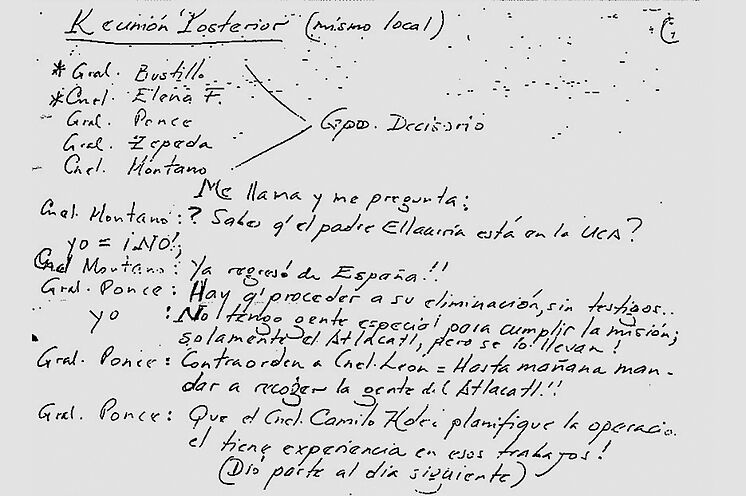 Reunión Posterior (mismo local)
* Gral. Bustillo
* Cnel. Elena F.
Gral. Ponce
Gral. Zepeda
Cnel. Montano
Gpo. Decisorio
Me llama y me pregunta:
Cnel. Montano: ? Sabes q' el padre Ellacuría está en la UCA?
yo = ¡NO!;
Cnel Montano: Ya regresó de España!!
Gral. Ponce: Hay q' proceder a su eliminación, sin testigos..
yo : No tengo gente especial para cumplir la misión;
solamente el Atlacatl, pero se lo llevan!
Gral. Ponce: Contraorden a Cnel. Leon = Hasta mañana man-
dar a recoger la gente del Atlacatl!!
Gral. Ponce: Que el Cnel. Camilo Hdez planifique la operacio.
el tiene experiencia en esos trabajos!
(Dió parte al dia siguiente)